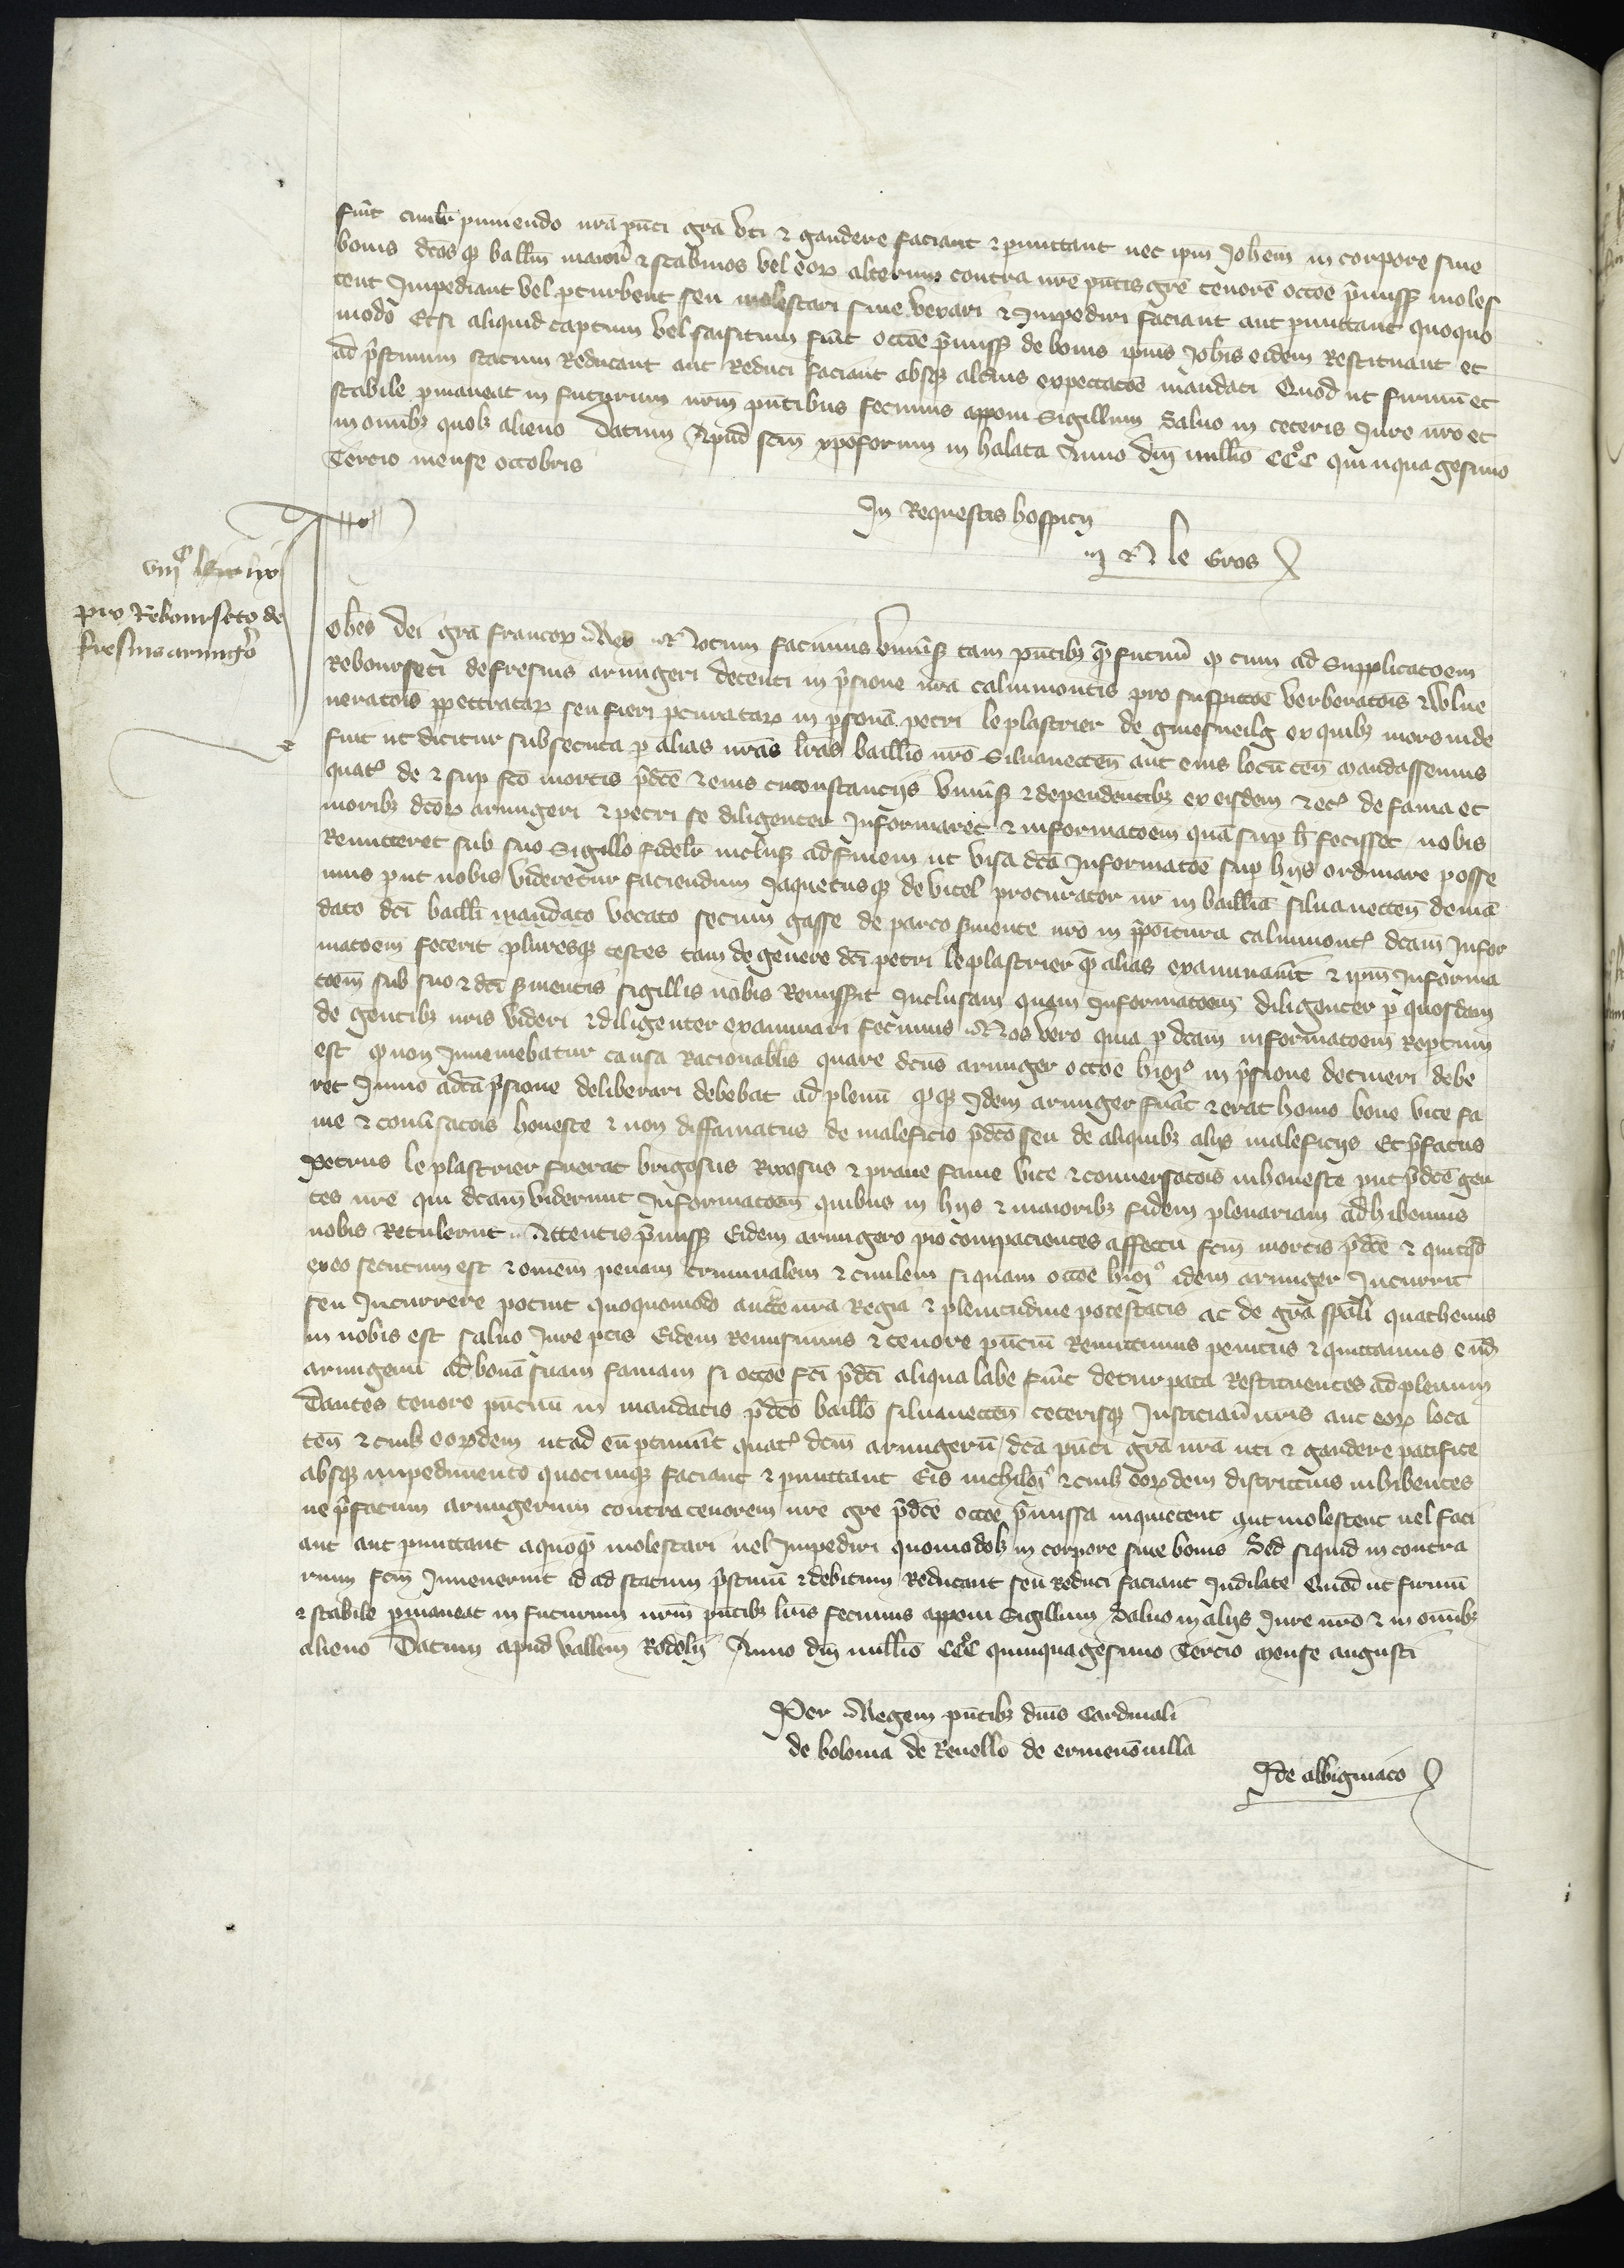 fuit civilit̃ puniendo nr̃a pñti gr̃a uti & gaudere faciant & ꝑmittant nec ipm̃ Joh̃em in corpore sive
bonis dc̃os qꝫ balłm maiorẽ & scabinos vel eoꝝ alterum contra nr̃e pñtis gr̃e tenorẽ occõe p̃missoꝝ moles
tent Impediant vel ꝑturbent seu molestari sive vexari & Impediri faciant aut ꝑmittant quoquo
modo Et si aliquid captum vel saisitum fũit occõe p̃missoꝝ de bonis ip̃ius Joh̃is eidem Restituant et
ad p̃stinum statum Reducant aut Reduci faciant absqꝫ alt̃ius expectatõe mandati Quod ut firmũ et
stabile ꝑmaneat in futurum nr̃m pñtibus fecimus apponi Sigillum Salvo in ceteris Jure nr̃o et
in om̃ibꝫ quolꝫ alieno Datum Apud sc̃m xp̃oforum in halata Anno dñi millõ CCCͦ quinquagesimo
Tercio mense octobris
In Requestis hospicij
N le Gros
viijͨ lxix
pro Rebourseto de
fresnis armig̃o
Joh̃es dei gr̃a francoꝝ Rex Notum facimus uniṽsis tam pñtibꝫ qͣ̃ futuris ꝙ cum ad Supplicatõem
Rebourseti de fresnis armigeri detenti in p̃sione nr̃a calvimontis pro suspitõe verberatõis & vulne
neratõis ꝑpetratаꝝ seu fieri ꝓcurataꝝ in ꝑsonã petri le plastrier de gnesneilg ex quibꝫ mors inde
fuit ut dicitur subsecuta ꝑ alias nr̃as lr̃as baillivo nr̃o Silvanecteñ aut eius locũ teñ mandassemus
quatꝰ de & suꝑ fc̃o mortis p̃dc̃e & eius circonstancijs uniṽsis & dependentibꝫ ex eisdem & ecꝰ de fama et
moribꝫ dc̃oꝝ armigeri & petri se diligenter Informaret & informatõem quã suꝑ h̃ fecisset nobis
Remitteret sub suo Sigillo fidelit̃ inclusꝫ ad finem ut visa dc̃a Informatõe suꝑ hijs ordinare posse
mus ꝓut nobis videretur faciendum Jaquetusqꝫ de vitel procurator nr̃ in baillivia silvanecteñ de mã
dato dc̃i bailli mandato vocato secum gasse de parco s̃viente nr̃o in p̃positura calvimontꝭ dc̃am Infor
matõem fecerit pluresqꝫ testes tam de genere dc̃i petri le plastrier qͣ̃ alias examinav̓it & ip̃m Informa
tõem sub suo & dc̃i s̃vientis sigillis nobis Remisit Inclusam quam Informatõem diligenter ꝑ quosdam
de gentibꝫ nr̃is videri & diligenter examinari fecimus Nos vero quia ꝑ dc̃am informatõem Reptum
est ꝙ non Inveniebatur causa Racionabilis quare dc̃us armiger occõe huiꝰ in p̃sione detineri debe
ret Immo a dc̃a p̃sione deliberari debebat ad plenũ ꝙqꝫ Idem armiger fuãt & erat homo bone vite fa
me & conv̓satõis honeste & non diffamatus de maleficio p̃dc̃o seu de aliquibꝫ alijs maleficijs Et p̃fatus
Petrus le plastrier fuerat brigosus Rixosus & prave fame vite & conversatõis inhoneste ꝓut p̃dc̃e gen
tes nr̃e qui dc̃am viderunt Informatõem quibus in hijs & maioribꝫ fidem plenariam adhibemus
nobis Retulerunt Attentis p̃missis Eidem armigero pio compacientes affectu fc̃m mortis p̃dc̃e & quicqͥd
ex eo secutum est & om̃em penam criminalem & civilem si quam occõe huiꝰ idem armiger Incurrit
seu Incurrere potuit quoquomodo auctẽ nr̃a Regia & plenitudine potestatis ac de gr̃a sp̃ali quathenus
in nobis est salvo Jure ꝑtis Eidem Remisimus & tenore pñcium Remittimus penitus & quittamus eũd̃
armigerũ ad bonã suam famam si occõe fc̃i p̃dc̃i aliqua labe fũit deturpata Restituentes ad plenum
Dantes tenore pñcium in mandatis p̃dc̃o baillo silvanecteñ ceterisqꝫ Justiciarijs nr̃is aut eoꝝ loca
teñ & cuilꝫ eoꝝdem ut ad eũ ꝑtinuit quatꝰ dc̃m armigerũ dc̃a pñti gr̃a nr̃a uti & gaudere pacifice
absqꝫ impedimento quocumqꝫ faciant & ꝑmittant Eis nichilo᷑ & cuilꝫ eoꝝdem districtius inhibentes
ne p̃fatum armigerum contra tenorem nr̃e gr̃e p̃dc̃e occõe p̃missa inquietent aut molestent vel faci
ant aut ꝑmittant a quoqͣ̃ molestari vel Impediri quomodolꝫ in corpore sive bonis Sed si quid in contra
rium fc̃m Invenerint id ad statum p̃stinũ & debitum Reducant seu Reduci faciant Indilate Quod ut firmũ
& stabile ꝑmaneat in futurum nr̃m pñtibꝫ lr̃is fecimus apponi Sigillum Salvo in alijs Jure nr̃o & in om̃ibꝫ
alieno Datum apud vallem Rodolij Anno dñi millõ CCCͦ quinquagesimo Tercio mense augusti
Per Regem pñtibꝫ dñis Cardinali
de bolonia de Revello de ermenõvilla
P de albigniaco